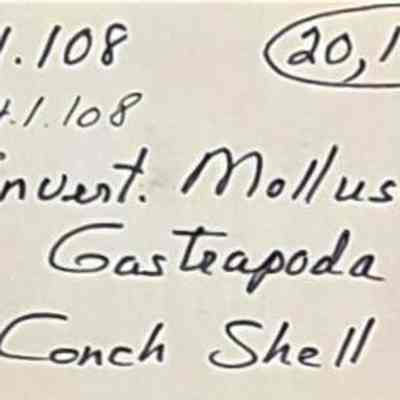 1.108 20,1
4.1.108
Invert. Mollus
Gasteapoda
Conch Shell